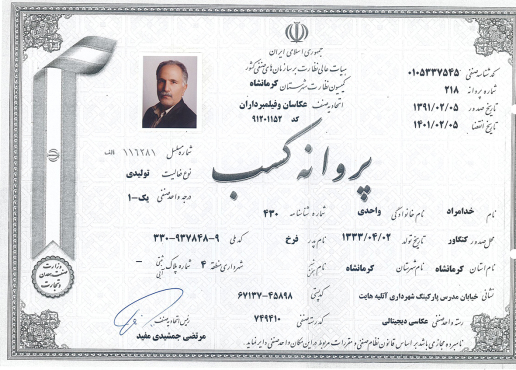 جمهوری اسلامی ایران
هیات عالی نظارت بر سازمان‌های صنفی کشور
کمیسیون نظارت شهرستان کرمانشاه
اتحادیه صنف عکاسان وفیلمبرداران
کد ۹۱۲۰۱۱۵۲
کد شناسه صنفی ۰۱۰۵۳۳۷۵۴۵
شماره پروانه ۲۱۸
تاریخ صدور ۱۳۹۱/۰۲/۰۵
تاریخ انقضا ۱۴۰۱/۰۲/۰۵
شماره مسلسل ۱۱۶۲۸۱ الف
نوع فعالیت تولیدی
درجه واحد صنفی یک-۱
پروانه کسب
نام خدامراد نام خانوادگی واحدی شماره شناسنامه ۴۳۰
محل صدور کنگاور تاریخ تولد ۱۳۳۳/۰۴/۰۲ نام پدر فرخ کد ملی ۳۳۰-۹۳۷۸۴۸-۹
نام استان کرمانشاه نام شهرستان کرمانشاه نام بخش شهرداری منطقه ۴ شماره پلاک آبی -
نشانی خیابان مدرس پارکینگ شهرداری آتلیه هایت کدپستی ۶۷۱۳۷-۴۵۸۹۸
رسته واحد صنفی عکاسی دیجیتالی کد رسته صنفی ۷۴۹۴۱۰
نامبرده مجاز می باشد بر اساس قانون نظام صنفی و مقررات مربوط در این مکان واحد صنفی دایر نماید.
رئیس اتحادیه صنف
مرتضی جمشیدی مفید
وزارت
صنعت، معدن
و تجارت